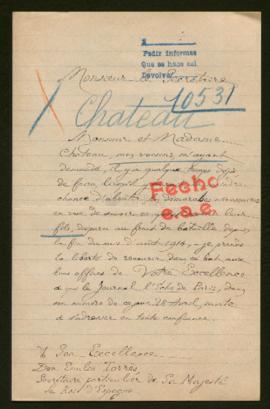 A
Pedir informes
Que se haga así
Devolver
Monsieur le Secrétaire
10531
Chateau
Monsieur et Madame
Chateau, mes voisins, m'ayant
demandé, il y a quelque temps déjà
de faire
Fecho
e.a.e.
chance d'aboutir, démarches nécessaires
en vue de savoir ce
leur
fils, disparu au champ de bataille depuis
la fin du mois d'août 1914, je prends
la liberté de recourir dans ce but aux
bons offices de Votre Excellence
que le Journal l'Echo de Paris, dans
son numéro de ce jour 28 Avril, invite
à s'adresser en toute confiance.
A Son Excellence
Don Emilio Torres,
Secrétaire particulier de Sa Majesté
le Roi d'Espagne